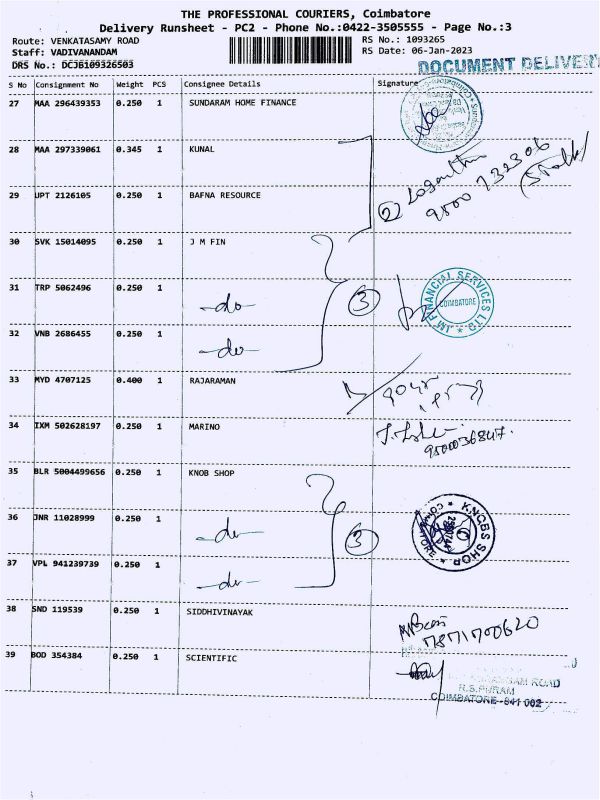 THE PROFESSIONAL COURIERS, Coimbatore
Delivery Runsheet - PC2 - Phone No.:0422-3505555 - Page No.:3
Route: VENKATASAMY ROAD
RS No.: 1093265
Staff: VADIVANANDAM
RS Date: 06-Jan-2023
DRS No.: DCJB109326503
DOCUMENT DELIVERY
S No Consignment No Weight PCS Consignee Details Signature
27 MAA 296439353 0.250 1 SUNDARAM HOME FINANCE
28 MAA 297339061 0.345 1 KUNAL
29 UPT 2126105 0.250 1 BAFNA RESOURCE
2
9500732306
30 SVK 15014095 0.250 1 J M FIN
31 TRP 5062496 0.250 1 -do-
3
JM FINANCIAL SERVICES LTD
COIMBATORE
32 VNB 2686455 0.250 1 -do-
33 MYD 4707125 0.400 1 RAJARAMAN
34 IXM 502628197 0.250 1 MARINO
35 BLR 5004499656 0.250 1 KNOB SHOP
36 JNR 11028999 0.250 1 -do-
3
KNOBS SHOP
37 VPL 941239739 0.250 1 -do-
38 SND 119539 0.250 1 SIDDHIVINAYAK
39 BOD 354384 0.250 1 SCIENTIFIC
ROAD
R.S.PURAM
COIMBATORE-641 002